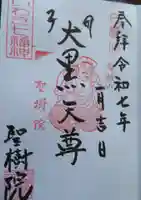 奉拝 令和七年
一月吉日
甲子
大黒天尊
聖樹院
聖樹院
七福神